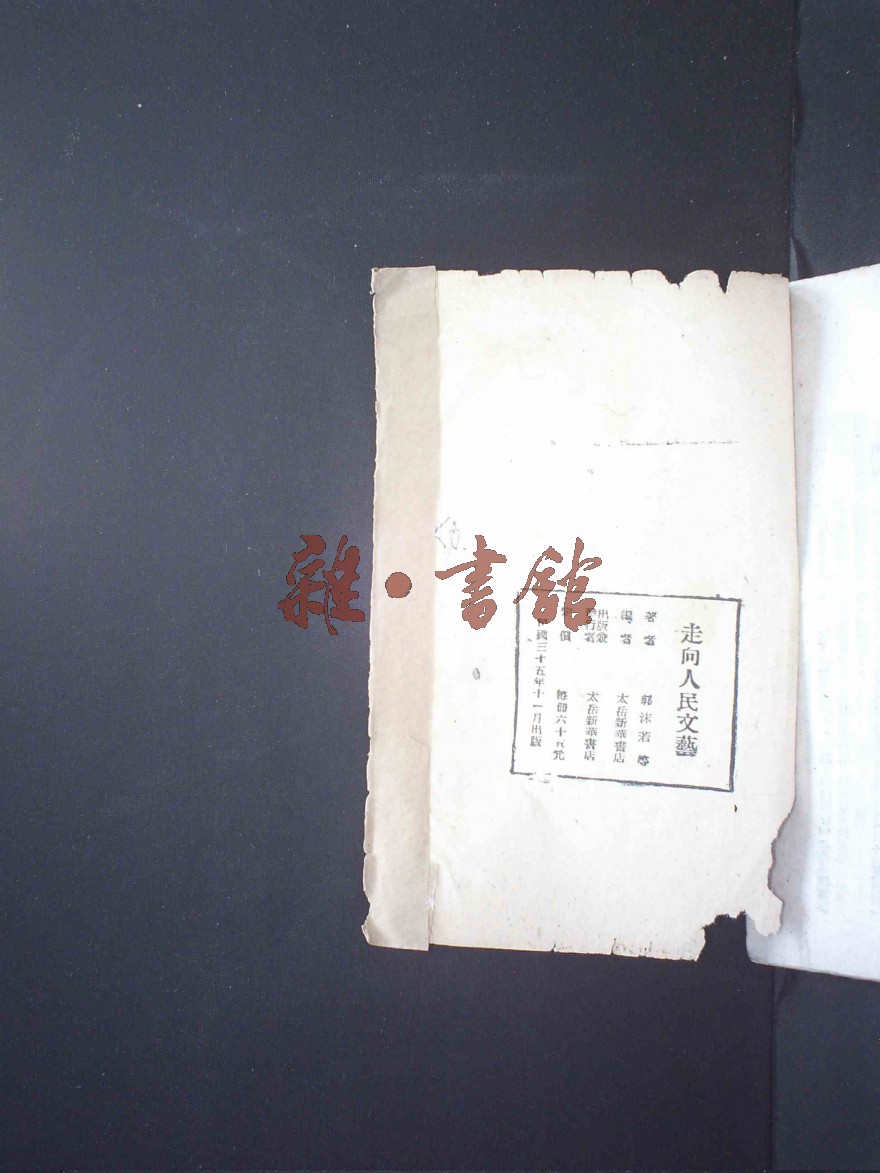 走向人民文藝
著者 郭沫若等
編者 太岳新華書店
出版兼
發行者 太岳新華書店
定價 每冊六十五元
民國三十五年十一月出版
雜·書館